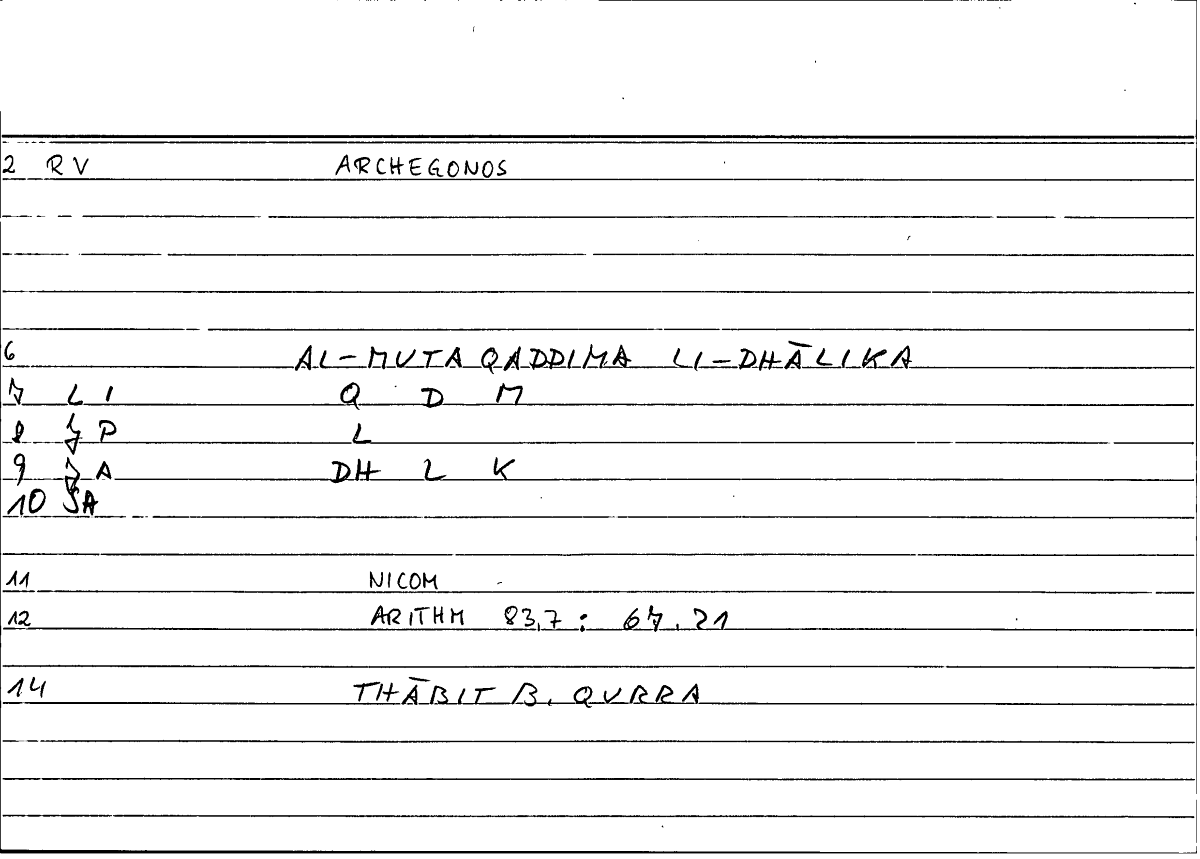 2 RV ARCHEGONOS
6 AL-MUTAQADDIMA LI-DHĀLIKA
7 LI Q D M
8 P L
9 A DH L K
10 SA
11 NICOM
12 ARITHM 83,7 : 67.21
14 THĀBIT B. QURRA